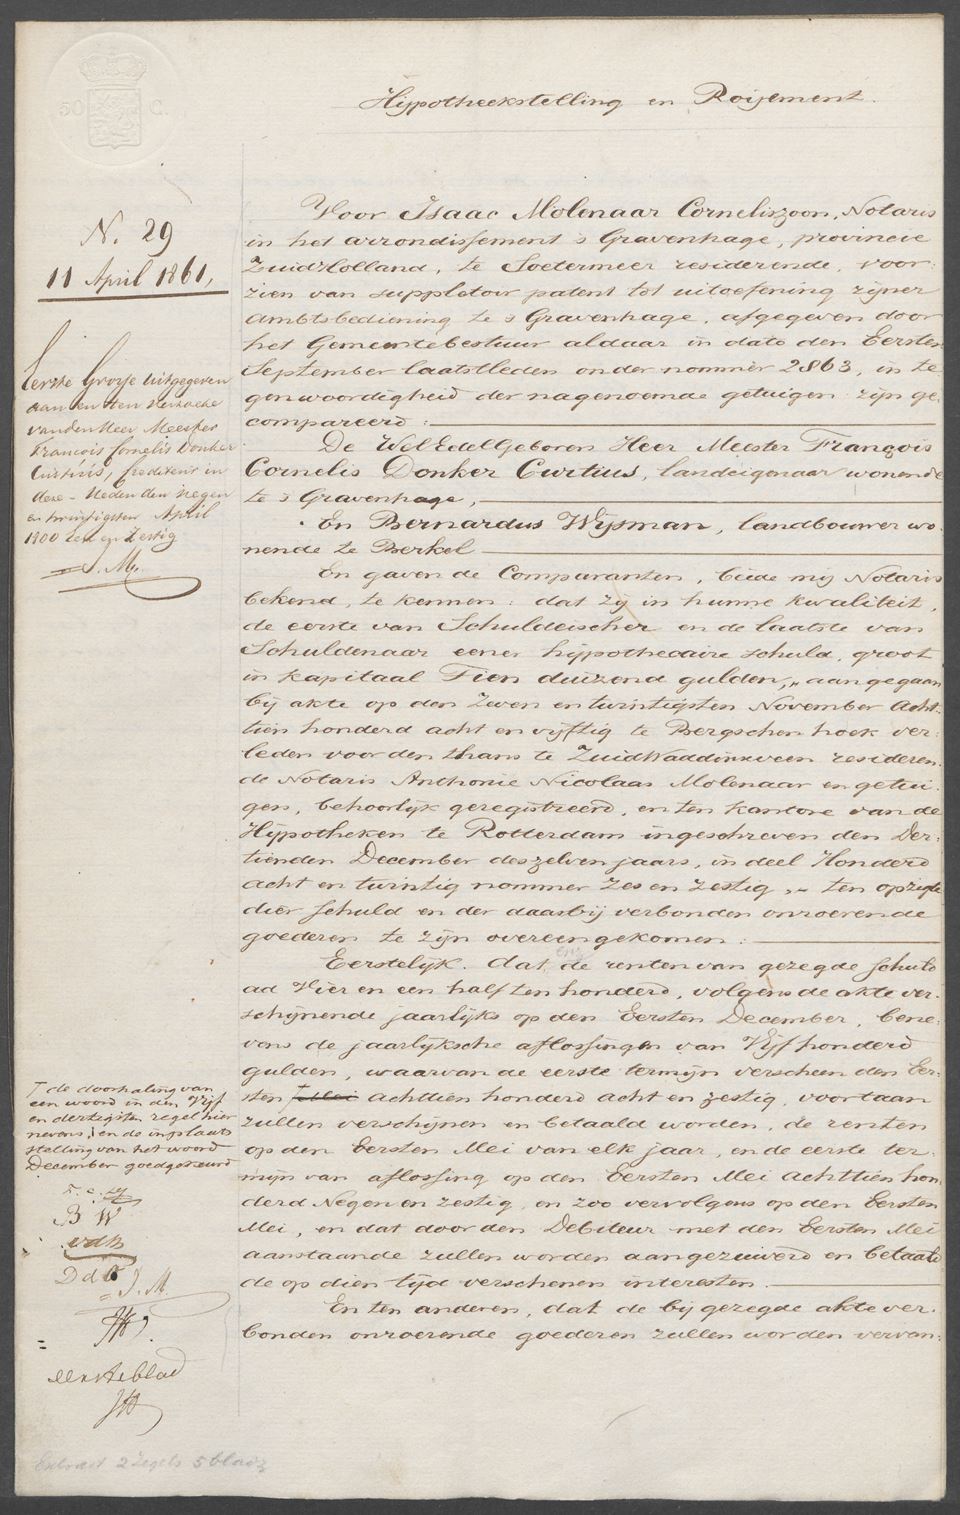 50 C.
Hypotheekstelling en Roijement.
N. 29
11 April 1861,
Eerste Grosse uitgegeven
aan en ten verzoeke
van den Heer Meester
Francois Cornelis Donker
Curtius, crediteur in
deze - Heden den negen
en twintigsten April
1800 een en zestig
I. M.
Voor Isaac Molenaar Corneliszoon, Notaris
in het arrondissement 's Gravenhage, provincie
ZuidHolland, te Soetermeer residerende, voor-
zien van suppletoir patent tot uitoefening zijner
ambtsbediening te 's Gravenhage, afgegeven door
het Gemeentebestuur aldaar in dato den Eersten
September laatstleden onder nommer 2863, in te
genwoordigheid der nagenoemde getuigen zijn ge-
compareerd:
De WelEdelGeboren Heer Meester François
Cornelis Donker Curtius, landeigenaar wonende
te 's Gravenhage,
En Bernardus Wijsman, landbouwer wo-
nende te Berkel
En gaven de Comparanten, beide mij Notaris
bekend, te kennen: dat zij in hunne kwaliteit,
de eerste van Schuldeischer en de laatste van
Schuldenaar eener hypothecaire schuld, groot
in kapitaal Tien duizend gulden, aangegaan
bij akte op den Zeven en twintigsten November acht-
tien honderd acht en vijftig te Bergschen hoek ver-
leden voor den thans te ZuidWaddinxveen resideren-
de Notaris Anthonie Nicolaas Molenaar en getui-
gen, behoorlijk geregistreerd, en ten kantore van de
Hypotheken te Rotterdam ingeschreven den Der-
tienden December deszelven jaars, in deel Honderd
acht en twintig nommer Zes en zestig, ten opzigte
dier schuld en der daarbij verbonden onroerende
goederen te zijn overeengekomen:
Eerstelijk. dat de renten van gezegde schuld
ad Vier en een half ten honderd, volgens de akte ver-
schijnende jaarlijks op den Eersten December, bene-
vens de jaarlijksche aflossingen van Vijf honderd
gulden, waarvan de eerste termijn verscheen den Eer-
sten Mei achttien honderd acht en zestig, voortaan
zullen verschijnen en betaald worden, de renten
op den Eersten Mei van elk jaar, en de eerste ter-
mijn van aflossing op den Eersten Mei achttien hon-
derd Negen en zestig, en zoo vervolgens op den Eersten
Mei, en dat door den Debiteur met den Eersten Mei
aanstaande zullen worden aangezuiverd en betaald
de op dien tijd verschenen interesten.
En ten anderen, dat de bij gezegde akte ver-
bonden onroerende goederen zullen worden vervan-
de doorhaling van
een woord in den vijf
en dertigsten regel hier
nevens, en de inplaats
stelling van het woord
December goedgekeurd
B W
vdB
I. M.
eerste blad
Extract 2 zegels 5 bladz